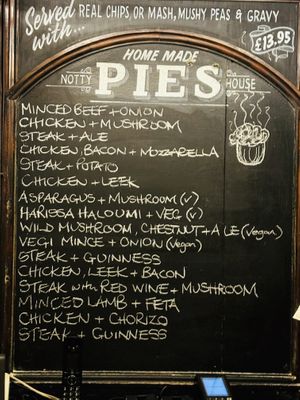 Served with... REAL CHIPS OR MASH, MUSHY PEAS & GRAVY
£13.95
HOME MADE
NOTTY PIES HOUSE
MINCED BEEF + ONION
CHICKEN + MUSHROOM
STEAK + ALE
CHICKEN, BACON + MOZZARELLA
STEAK + POTATO
CHICKEN + LEEK
ASPARAGUS + MUSHROOM (V)
HARISSA HALOUMI + VEG (V)
WILD MUSHROOM, CHESTNUT + ALE (Vegan)
VEGI MINCE + ONION (Vegan)
STEAK + GUINNESS
CHICKEN, LEEK + BACON
STEAK with RED WINE + MUSHROOM
MINCED LAMB + FETA
CHICKEN + CHORIZO
STEAK + GUINNESS